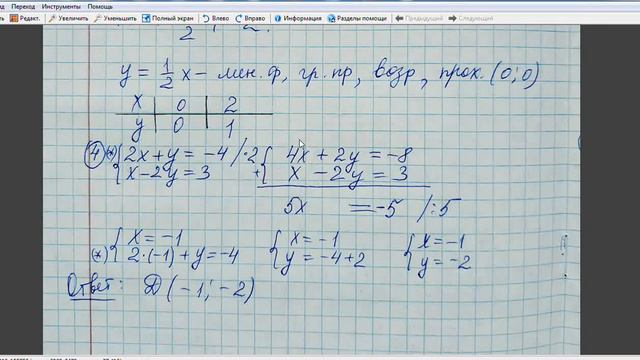 Переход Инструменты Помощь
Редакт. Увеличить Уменьшить Полный экран Влево Вправо Информация Разделы помощи Предыдущий Следующий
y = 1/2 x - лин. ф, гр. пр, возр, прох. (0; 0)
x 0 2
y 0 1
④ (*) { 2x + y = -4 /·2 { 4x + 2y = -8
x - 2y = 3 + x - 2y = 3
5x = -5 /:5
(*) { x = -1 { x = -1 { x = -1
2·(-1) + y = -4 y = -4 + 2 y = -2
Ответ: D (-1; -2)